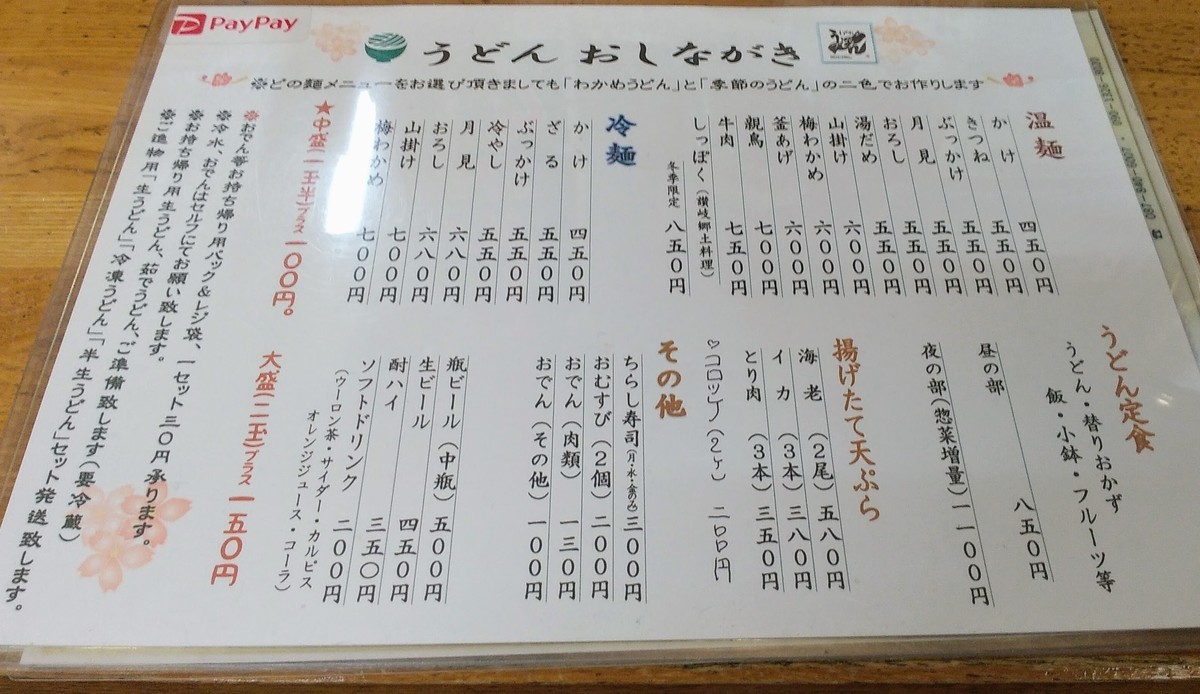 PayPay
うどん おしながき
※どの麺メニューをお選び頂きましても「わかめうどん」と「季節のうどん」の二色でお作りします
温麺
かけ 四五0円
きつね 五五0円
ぶっかけ 五五0円
月見 五五0円
おろし 五五0円
湯だめ 六00円
山掛け 六00円
梅わかめ 六00円
釜あげ 六00円
親鳥 七00円
牛肉 七五0円
しっぽく(讃岐郷土料理)
冬季限定 八五0円
冷麺
かけ 四五0円
ざる 五五0円
ぶっかけ 五五0円
冷やし 五五0円
月見 六八0円
おろし 六八0円
山掛け 七00円
梅わかめ 七00円
★中盛(一玉半)プラス 一00円。
うどん定食
うどん・替りおかず
飯・小鉢・フルーツ等
昼の部 八五0円
夜の部(惣菜増量) 一一00円
揚げたて天ぷら
海老(2尾) 五八0円
イカ(3本) 三八0円
とり肉(3本) 三五0円
♡コロッケ(2ヶ) 二00円
その他
ちらし寿司(月・水・金のみ) 三00円
おむすび(2個) 二00円
おでん(肉類) 一三0円
おでん(その他) 一00円
瓶ビール(中瓶) 五00円
生ビール 四五0円
酎ハイ 三五0円
ソフトドリンク 二00円
(ウーロン茶・サイダー・カルピス
オレンジジュース・コーラ)
大盛(二玉)プラス 一五0円
※おでん等お持ち帰り用パック&レジ袋、一セット三0円承ります。
※冷水、おでんはセルフにてお願い致します。
※お持ち帰り用生うどん、茹でうどん、ご準備致します(要冷蔵)
※ご進物用「生うどん」「冷凍うどん」「半生うどん」セット発送致します。